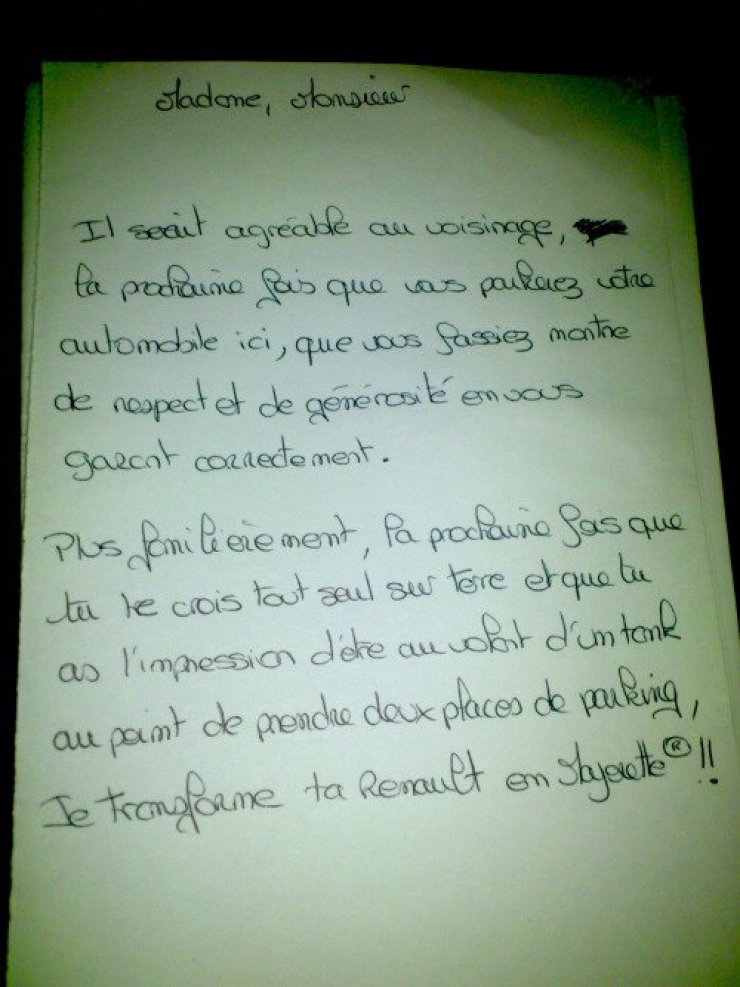 Madame, Monsieur
Il serait agréable au voisinage,
la prochaine fois que vous parkerez votre
automobile ici, que vous fassiez montre
de respect et de générosité en vous
garant correctement.
Plus familièrement, la prochaine fois que
tu te crois tout seul sur terre et que tu
as l'impression d'être au volant d'un tank
au point de prendre deux places de parking,
Je transforme ta Renault en Majorette® !!